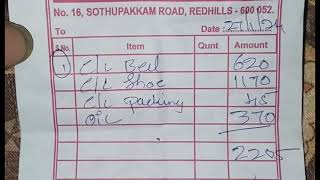 No. 16, SOTHUPAKKAM ROAD, REDHILLS - 600 052.
To 27/1/24
Date
S.No. Item Qunt Amount
1 C/L Bell 620
C/L Shoe 1170
C/L Packing 45
OIL 370
2205